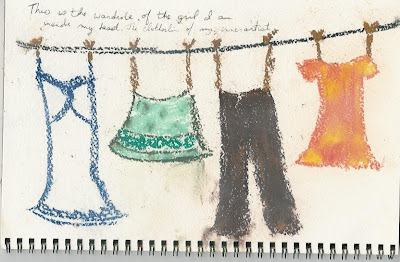 This is the wardrobe of the girl I am
inside my head. The clothesline of my inner artist.